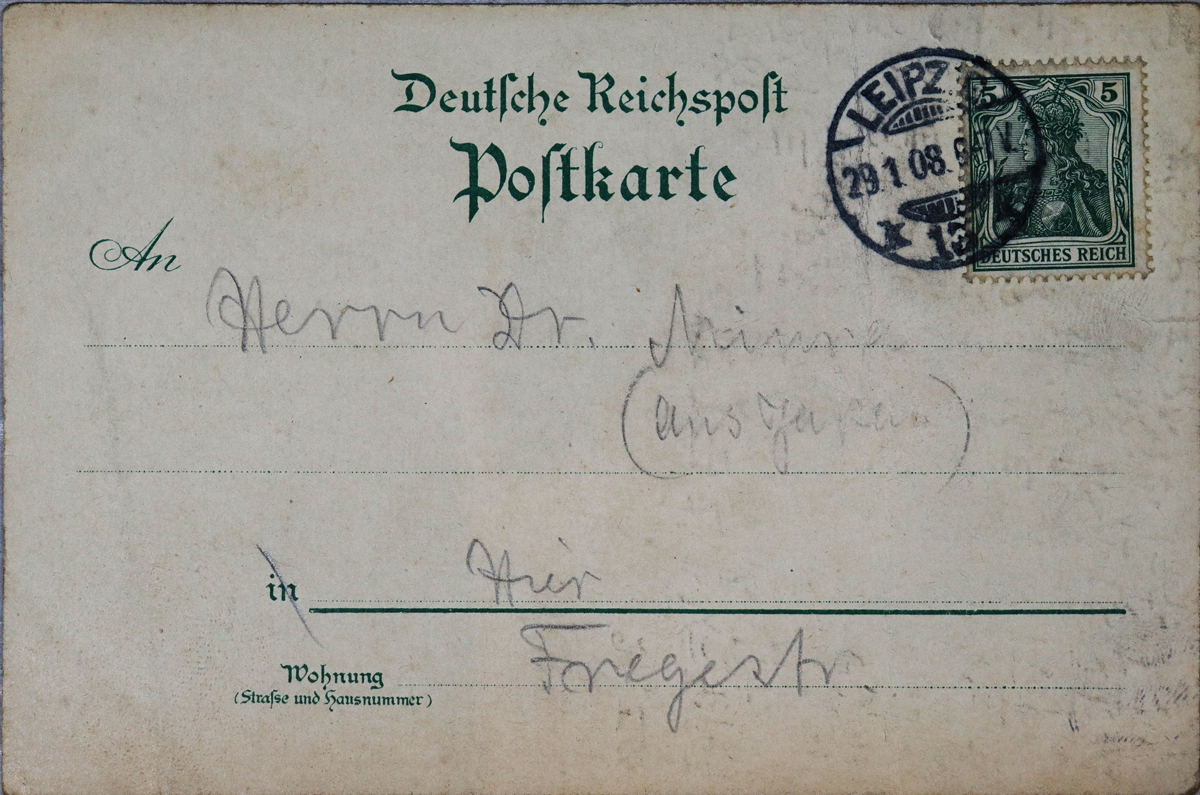 Deutsche Reichspost
Postkarte
LEIPZ
29.1.08. 6-7V.
13
5 5
DEUTSCHES REICH
An
Herrn Dr. Miura
(aus Japan)
in Hier
Wohnung Fregestr.
(Straße und Hausnummer)